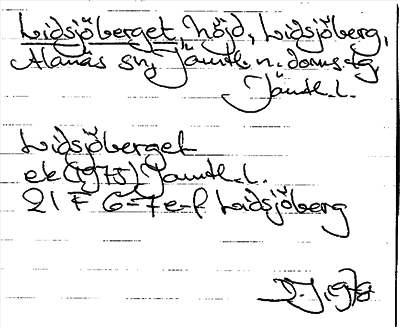 Lidsjöberget, höjd, Lidsjöberg,
Alanäs sn, Jämtl. n. doms-g,
Jämtl. l.
Lidsjöberget
ek (1975) Jämtl. l.
21 F 6-7 e-f Lidsjöberg
1978